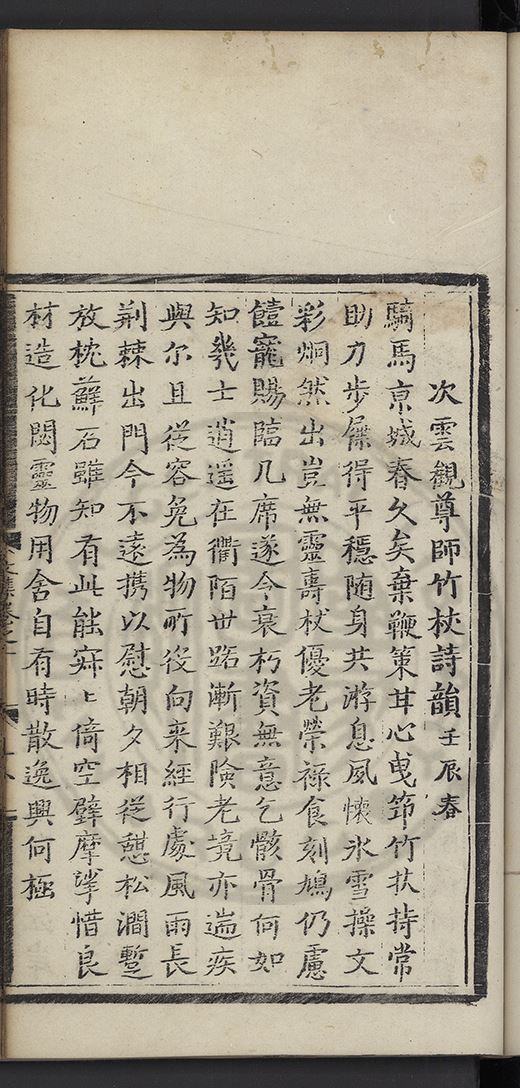 次雲觀尊師竹杖詩韻壬辰春
騎馬京城春久矣棄鞭策甘心曳笻竹扶持常
助力步屧得平穩随身共游息風懷氷雪操文
彩炯然出豈無靈壽杖優老榮禄食刻鳩仍慮
饐寵賜臨几席遂令衰朽資無意乞骸骨何如
知幾士逍遥在衢陌世路漸艱險老境亦遄疾
與尔且從容免為物所役向来經行處風雨長
荆棘出門今不遠携以慰朝夕相從憇松澗蹔
放枕蘚石雖知有此能寂〻倚空壁摩挲惜良
材造化閟靈物用舍自有時散逸興何極